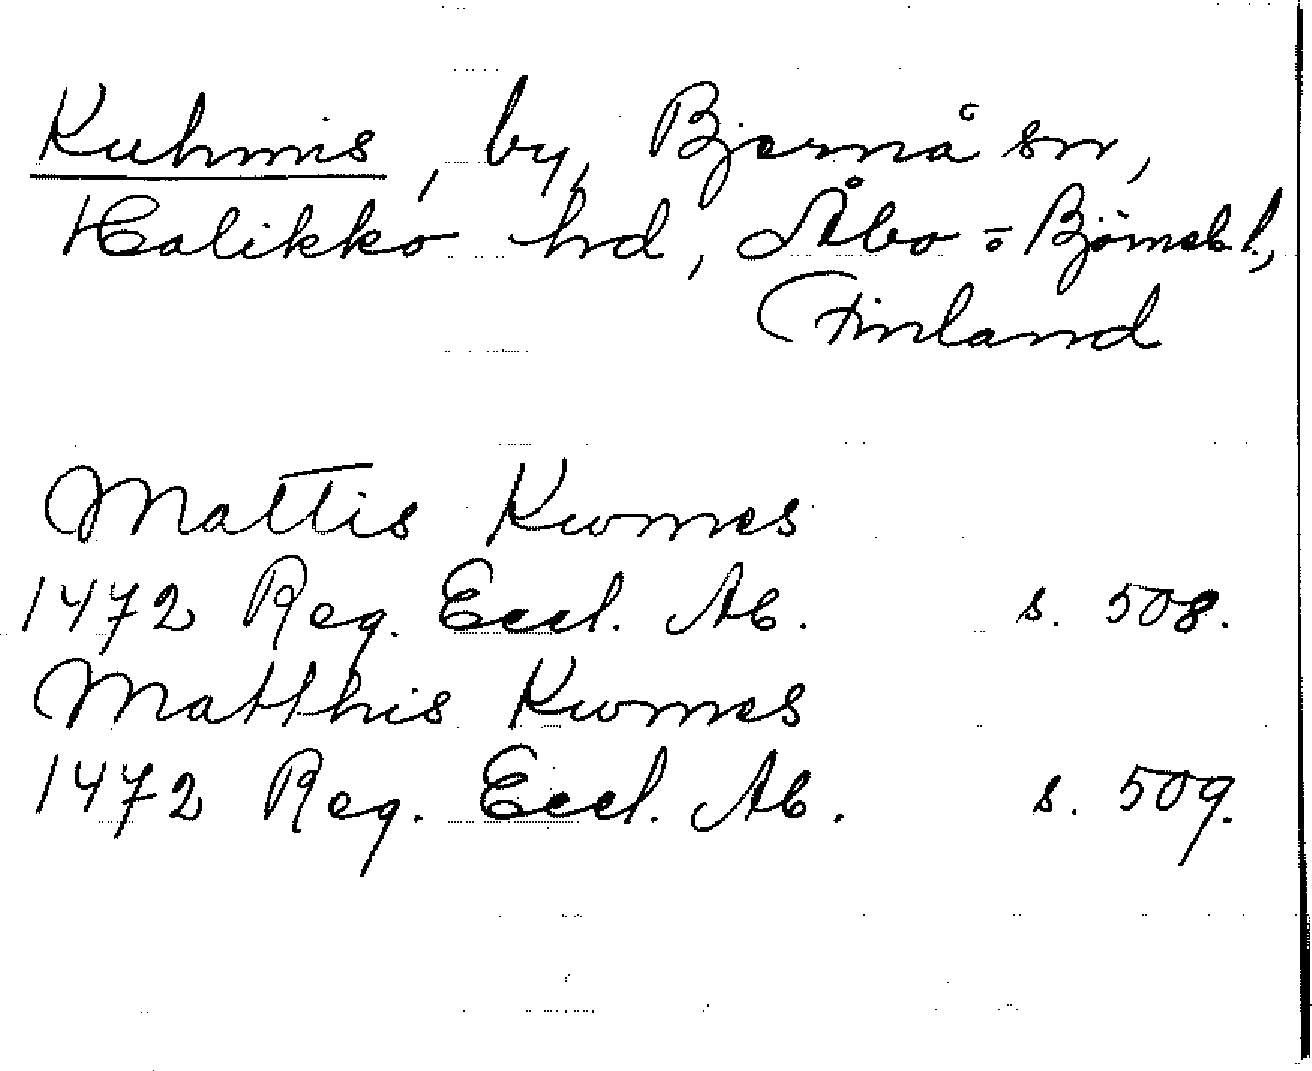 Kuhmis, by, Bjernå sn,
Halikko hd, Åbo = Björneb. l.,
Finland
Mattis Kwmes
1472 Reg. Eccl. Ab. s. 508.
Matthis Kwmes
1472 Reg. Eccl. Ab. s. 509.